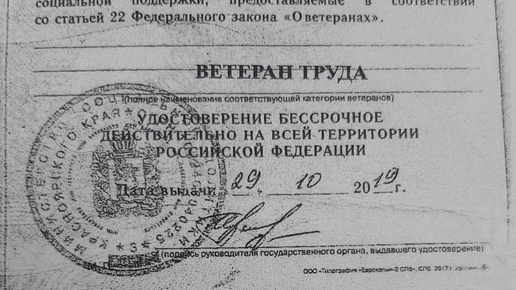 социальной поддержки, предоставляемые в соответствии
со статьей 22 Федерального закона «О ветеранах».
ВЕТЕРАН ТРУДА
(полное наименование соответствующей категории ветеранов)
УДОСТОВЕРЕНИЕ БЕССРОЧНОЕ
ДЕЙСТВИТЕЛЬНО НА ВСЕЙ ТЕРРИТОРИИ
РОССИЙСКОЙ ФЕДЕРАЦИИ
Дата выдачи 29. 10 2019г.
(подпись руководителя государственного органа, выдавшего удостоверение)
МИНИСТЕРСТВО СОЦИАЛЬНОЙ ПОЛИТИКИ
КРАСНОЯРСКОГО КРАЯ